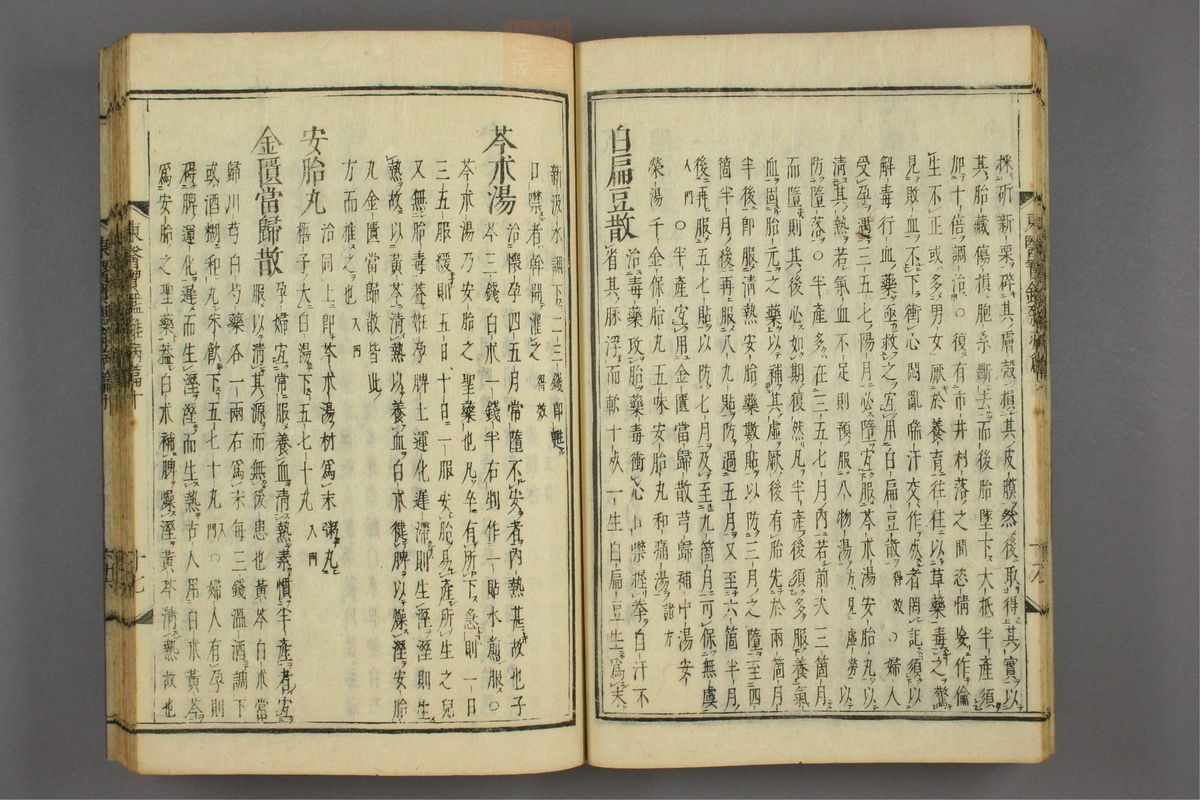 採斫新栗碎其膚殼損其皮膜然後取得其實以
其胎藏傷損胞系斷去而後胎墜下大抵半產須
加十倍調治○後有市井村落之間恣情妄作倫
生不正或多男女厭於養育往往以草藥毒之驚
見敗血不下衝心悶亂喘汗交作死者罔記須以
解毒行血藥亟救之宜用白扁豆散得效○婦人
受孕遇三五七陽月必墮宜服芩朮湯安胎丸以
清其熱若氣血不足則預服八物湯方見虛勞以
防墮落○半產多在三五七月內若前次三箇月
而墮則其後必如期復然凡半產後須多服養氣
血固胎元之藥以補其虛厥後有胎先於兩箇月
半後即服清熱安胎藥數貼以防三月之墮至四
箇半月後再服八九貼防過五月又至六箇半月
後再服五七貼以防七月及至九箇月可保無虞
入門○半產宜用金匱當歸散芎歸補中湯安
榮湯千金保胎丸五味安胎丸和痛湯諸方
白扁豆散 治毒藥攻胎藥毒衝心口噤握拳自汗不
省其脉浮而軟十死一生白扁豆生爲末
新汲水調下二三錢即甦
口噤者幹開灌之得效
芩朮湯 治懷孕四五月常墮不安者內熱甚故也子
芩三錢白朮一錢半右剉作一貼水煎服○
芩朮湯乃安胎之聖藥也凡卒有所下急則一日
三五服緩則五日十日一服安胎易產所生之兒
又無胎毒葢姙孕脾土運化遲滯則生溼溼則生
熱故以黃芩清熱以養血白朮健脾以燥溼安胎
丸金匱當歸散皆此
方而推之也入門
安胎丸 治同上即芩朮湯材爲末粥丸
梧子大白湯下五七十丸入門
金匱當歸散 孕婦宜常服養血清熱素慣半產者宜
服以清其源而無後患也黃芩白朮當
歸川芎白芍藥各一兩右爲末每三錢溫酒調下
或酒糊和丸茶飲下五七十丸入門○婦人有孕則
碍脾運化遲而生溼溼而生熱古人用白朮黃芩
爲安胎之聖藥葢白朮補脾燥溼黃芩清熱故也
東醫寶鑑雜病篇十
十七